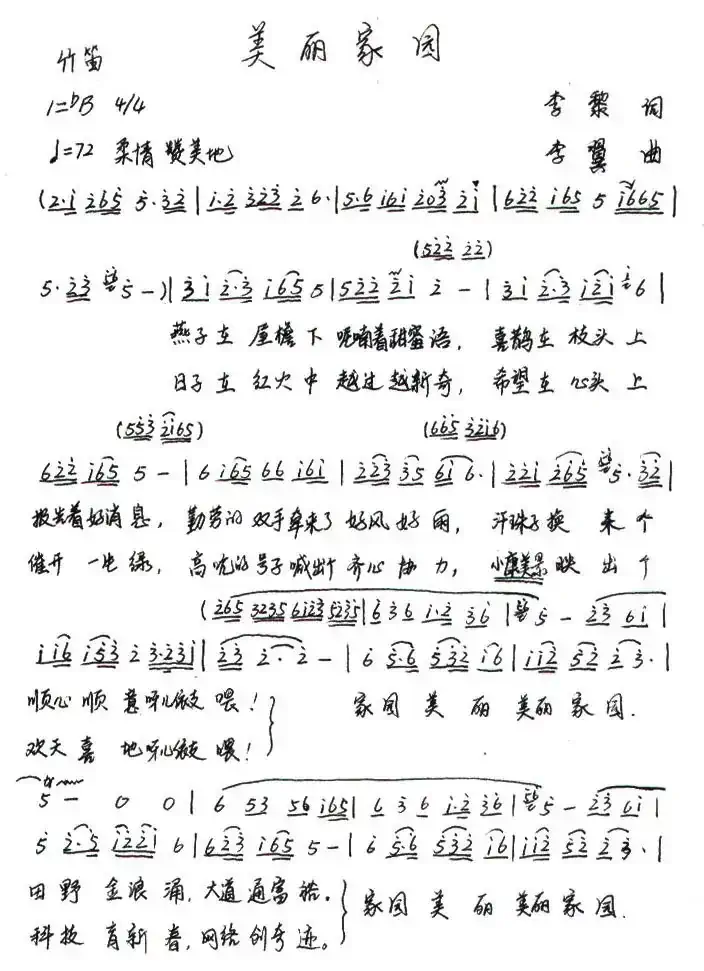 美丽家园
竹笛
1=♭B 4/4 李黎 词
♩=72 柔情 赞美地 李翼 曲
(2·1 265 5·32 | 1·2 323 2 6· | 5·6 161 203 21 | 622 165 5 1665 |
(522 22)
5·23 5 -) | 31 2·3 165 5 | 522 21 2 - | 31 2·3 121 6 |
燕子在 屋檐下 呢喃着甜蜜语, 喜鹊在 枝头上
日子在 红火中 越过越新奇, 希望在 心头上
(553 2165) (665 3216)
622 165 5 - | 6 165 66 161 | 223 35 61 6· | 221 265 5·32 |
报告着好消息, 勤劳的双手牵来了好风好雨, 汗珠子换 来个
催开 一片绿, 高吭的号子喊出个 齐心协力, 小康美景映 出个
(265 3235 6123 5235 | 6 36 1·2 36 | 5 - 23 61 |
116 153 2 3·231 | 23 2·2 - | 6 5·6 532 16 | 112 52 2 3· |
顺心 顺 意呀儿依支 喂! 家园 美 丽 美丽 家 园.
欢天 喜 地呀儿依支 喂!
5 - 0 0 | 6 53 56 165 | 6 36 1·2 36 | 5 - 23 61 |
5 2·5 1221 6 | 623 165 5 - | 6 5·6 532 16 | 112 52 2 3· |
田野 金浪 涌, 大道通富裕. 家园 美 丽 美丽 家 园.
科技 育新 春, 网络创奇迹。